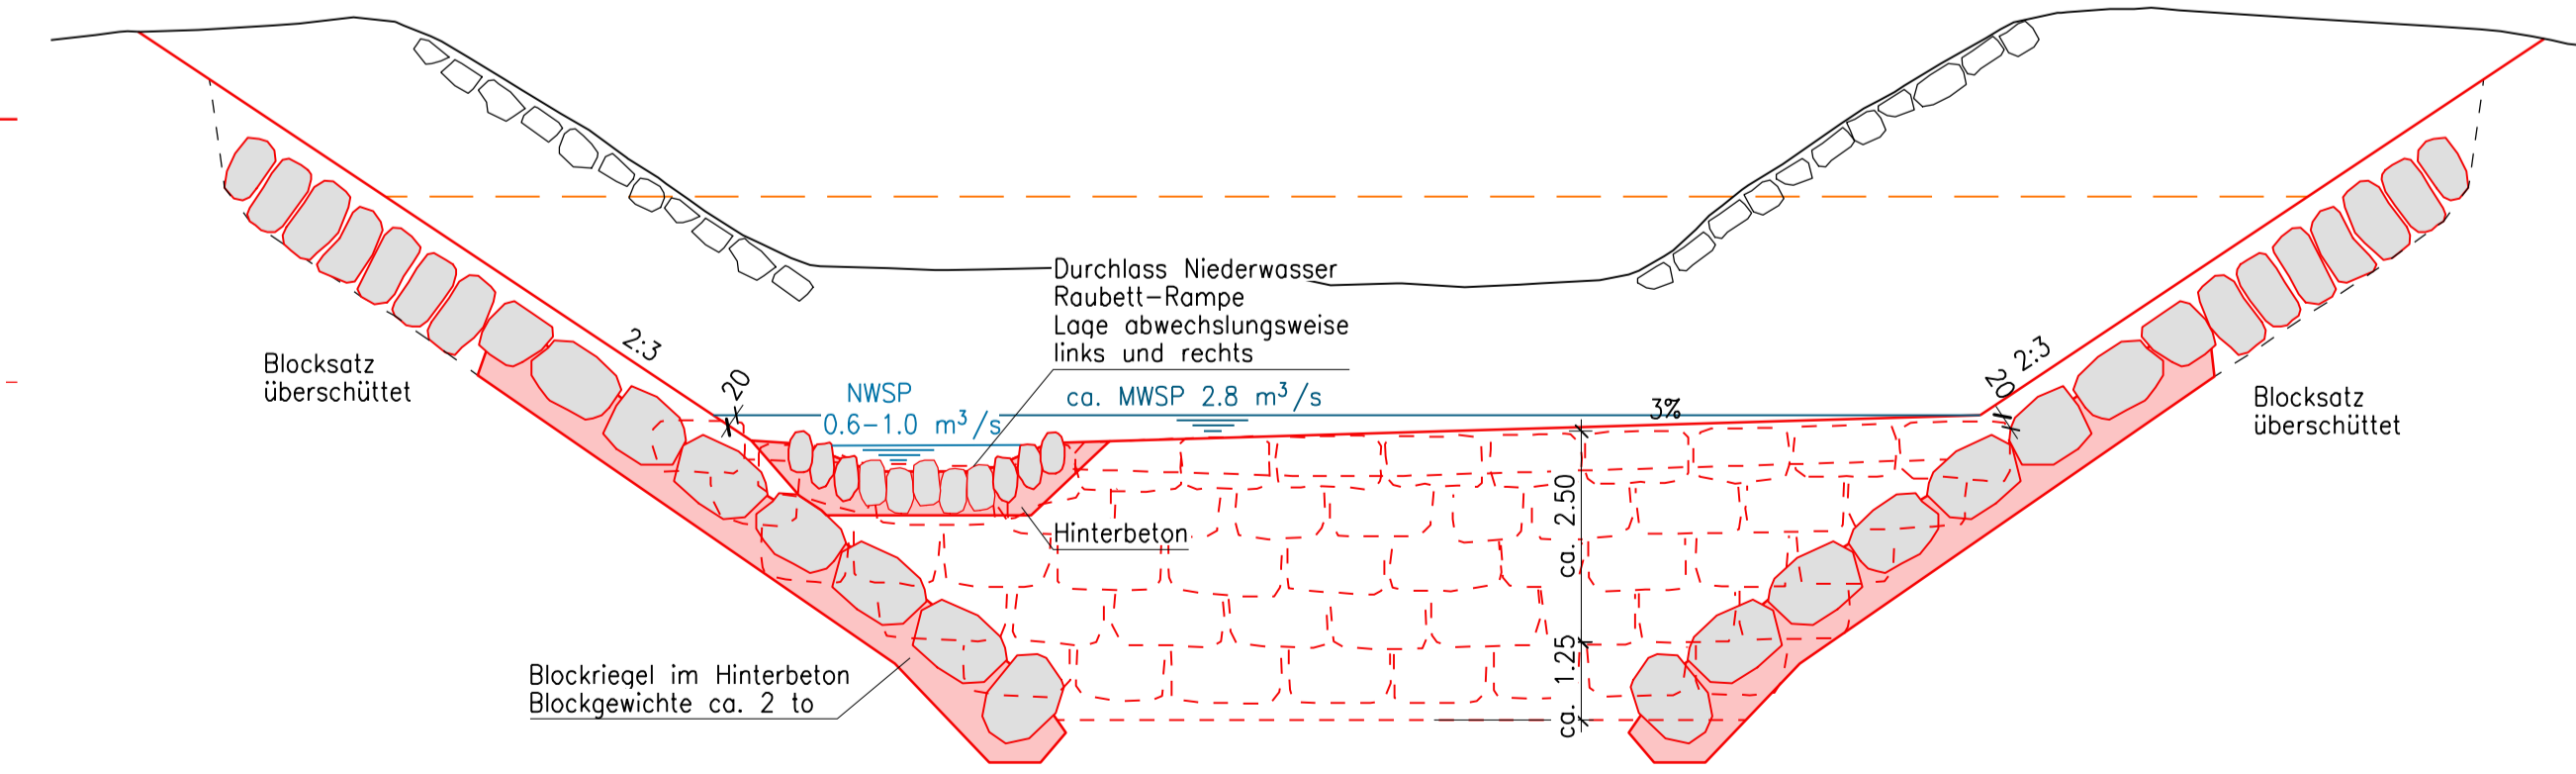 Durchlass Niederwasser
Raubett-Rampe
Lage abwechslungsweise
links und rechts
Blocksatz
überschüttet
2:3
20
NWSP
0.6-1.0 m³/s
ca. MWSP 2.8 m³/s
3%
20
2:3
Blocksatz
überschüttet
Hinterbeton
ca. 2.50
ca. 1.25
Blockriegel im Hinterbeton
Blockgewichte ca. 2 to